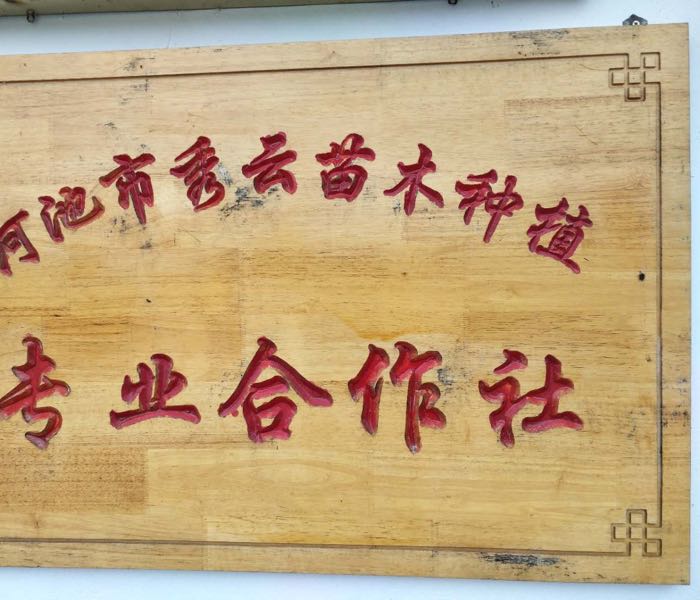 河池市秀云苗木种植
专业合作社